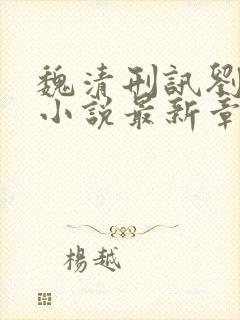 魏清刑訊劉
小說最新章
楊越